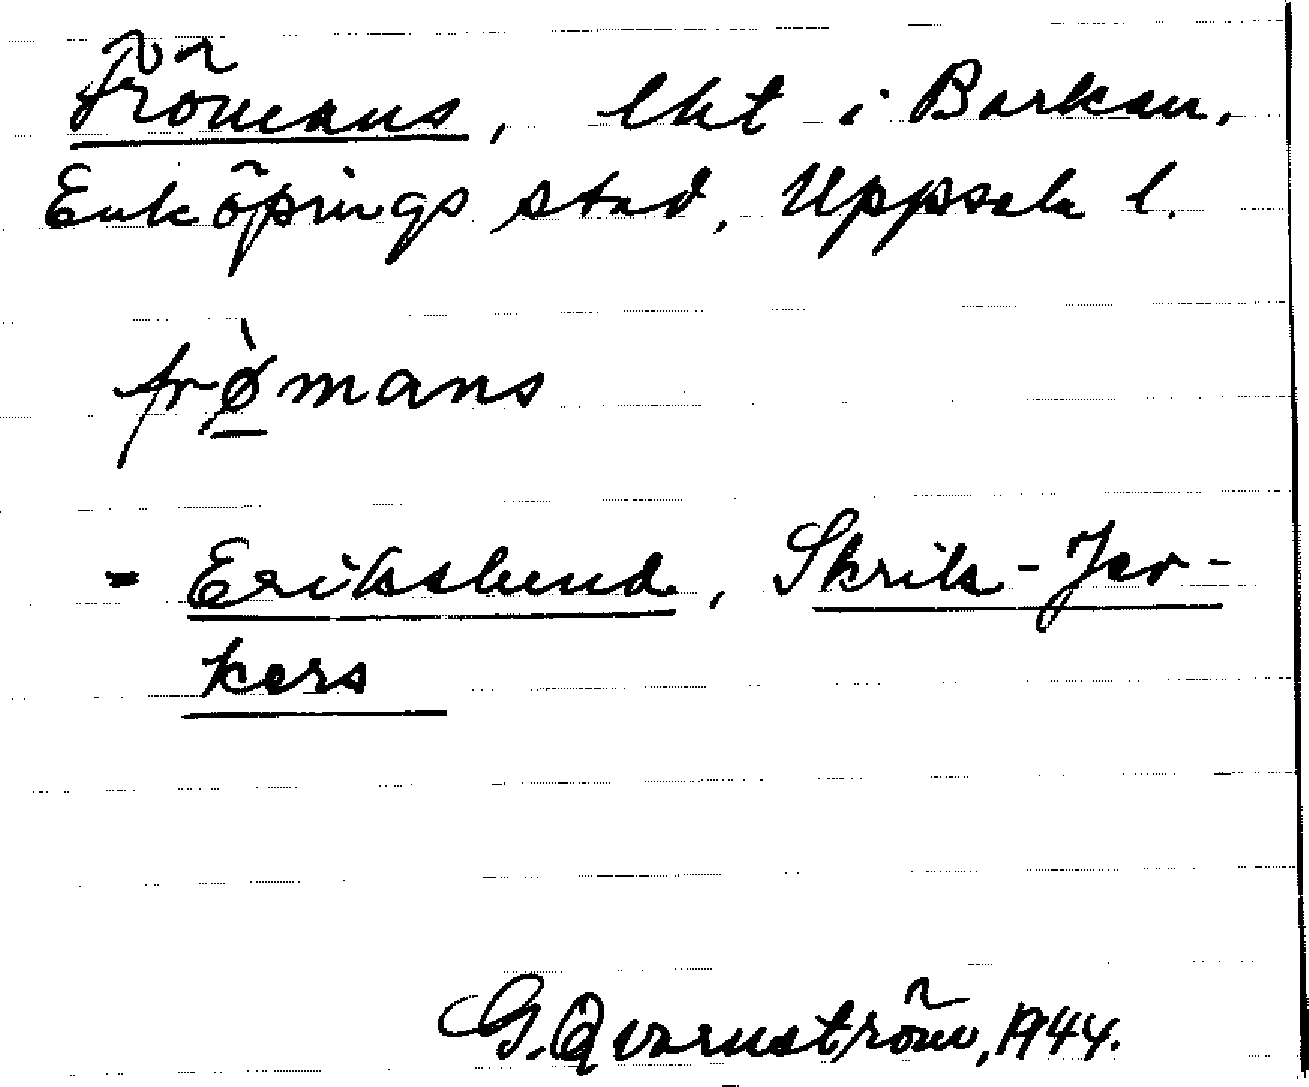 Frömans, lht i Barkan,
Enköpings stad, Uppsala l.
frø̀mans
= Erikslund, Skrik-Jer-
kers
G. Qvarnström, 1944.